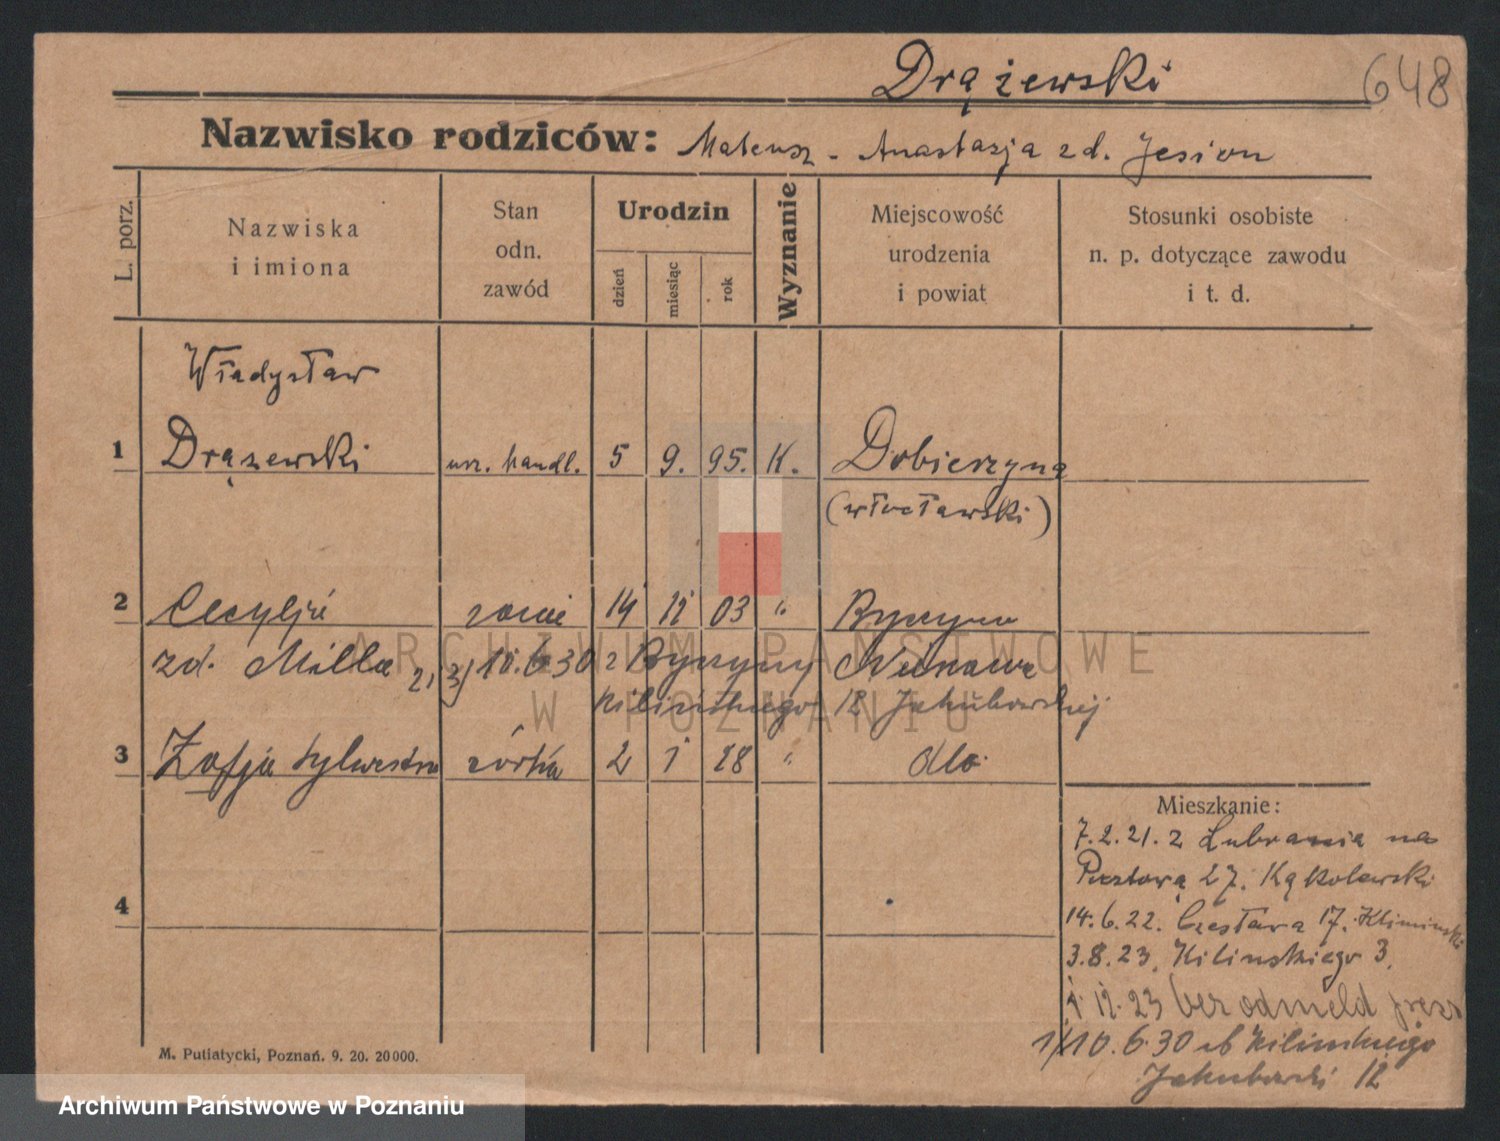 Drążewski 648
Nazwisko rodziców: Mateusz - Anastazja zd. Jesion
L. porz.
Nazwiska
i imiona
Stan
odn.
zawód
Urodzin
dzień
miesiąc
rok
Wyznanie
Miejscowość
urodzenia
i powiat
Stosunki osobiste
n. p. dotyczące zawodu
i t. d.
Władysław
1 Drążewski urz. handl. 5 9. 95. K. Dobierzyna
(włocławski)
2 Cecylja 14 12 03 "
zd. Milla 2, 3) 10.6.30 z
12 Jakubowskiej
3 Zofja Sylwestra córka 2 1 28 " dto
Mieszkanie:
7.2.21. z Lubrania na
Pocztową 27. Kąkolewski
14.6.22. Czesława 17. Klimiński
3.8.23. Kilinskiego 3.
1.12.23 bez odmeld
4
1/10.6.30 ub Kilinskiego
Jakubowski 12
M. Putiatycki, Poznań. 9. 20. 20000.
ARCHIWUM PAŃSTWOWE
W POZNANIU
Archiwum Państwowe w Poznaniu